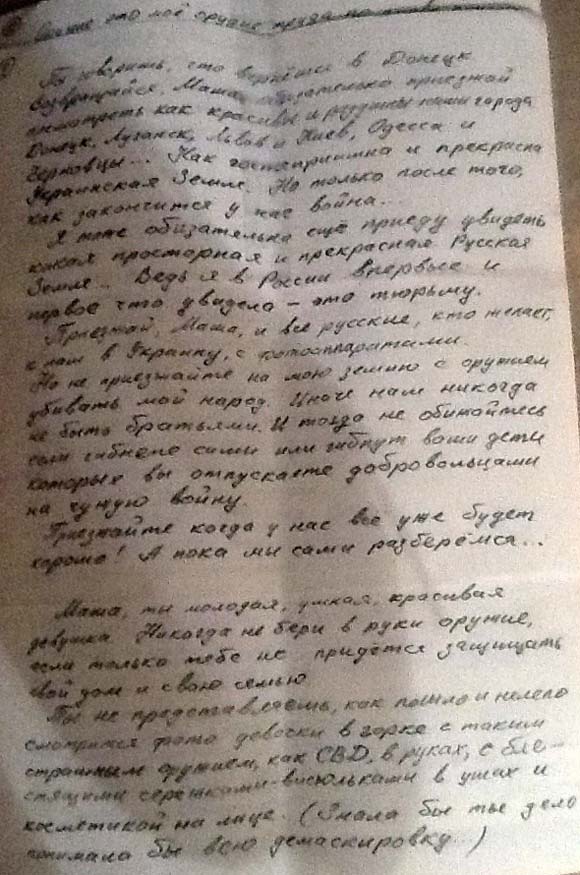 это моё орудие труда
Ты говоришь, что вернёшься в Донецк
Возвращайся, Маша, обязательно приезжай
посмотреть как красивы и радушны наши города
Донецк, Луганск, Львов и Киев, Одесса и
Черновцы... Как гостеприимна и прекрасна
Украинская Земля. Но только после того,
как закончится у нас война...
Я тоже обязательно ещё приеду увидеть
какая просторная и прекрасная Русская
Земля... Ведь я в России впервые и
первое что увидела – это тюрьму.
Приезжай, Маша, и все русские, кто желает,
к нам в Украину, с фотоаппаратами.
Но не приезжайте на мою землю с оружием
убивать мой народ. Иначе нам никогда
не быть братьями. И тогда не обижайтесь
если гибнете сами или гибнут ваши дети
которых вы отпускаете добровольцами
на чужую войну.
Приезжайте когда у нас всё уже будет
хорошо! А пока мы сами разберёмся...
Маша, ты молодая, умная, красивая
девушка. Никогда не бери в руки оружие,
если только тебе не придётся защищать
свой дом и свою семью
Ты не представляешь, как пошло и нелепо
смотрится фото девочки в горке с таким
страшным оружием, как СВД, в руках, с бле-
стящими серёжками-висюльками в ушах и
косметикой на лице. (Знала бы ты дело
понимала бы всю демаскировку...)